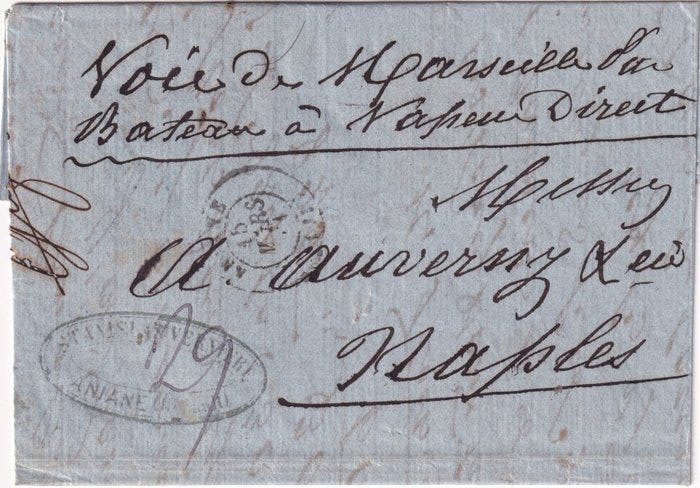 Voie De Marseille Par
Bateau à Vapeur Direct
Messrs
A. Auverny & Cie
Naples
15
MARS
STANISLAS
ANIANE
129